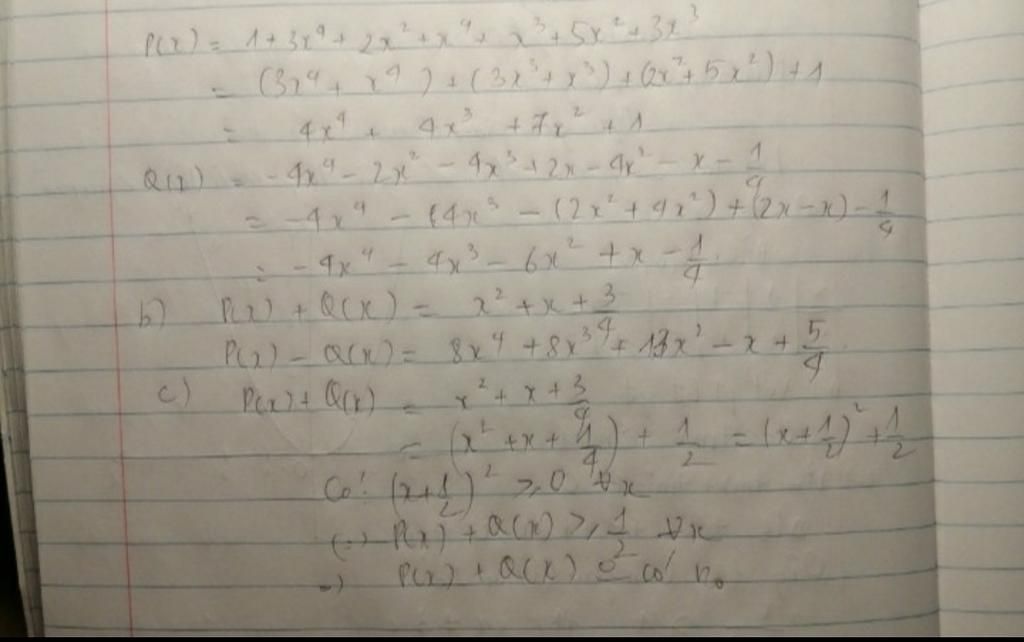 P(x) = 1 + 3x⁴ + 2x² + x⁴ + x³ + 5x² + 3x³
= (3x⁴ + x⁴) + (3x³ + x³) + (2x² + 5x²) + 1
= 4x⁴ + 4x³ + 7x² + 1
Q(x) = -4x⁴ - 2x² - 4x³ + 2x - 4x² - x - 1/4
= -4x⁴ - (4x³ - (2x² + 4x²) + (2x - x) - 1/4
= -4x⁴ - 4x³ - 6x² + x - 1/4.
b) P(x) + Q(x) = x² + x + 3/4
P(x) - Q(x) = 8x⁴ + 8x³ + 13x² - x + 5/4
c) P(x) + Q(x) = x² + x + 3/4
= (x² + x + 1/4) + 1/2 = (x + 1/2)² + 1/2
Có: (x + 1/2)² ≥ 0 ∀x
(=) P(x) + Q(x) ≥ 1/2 ∀x
=) P(x) + Q(x) có no